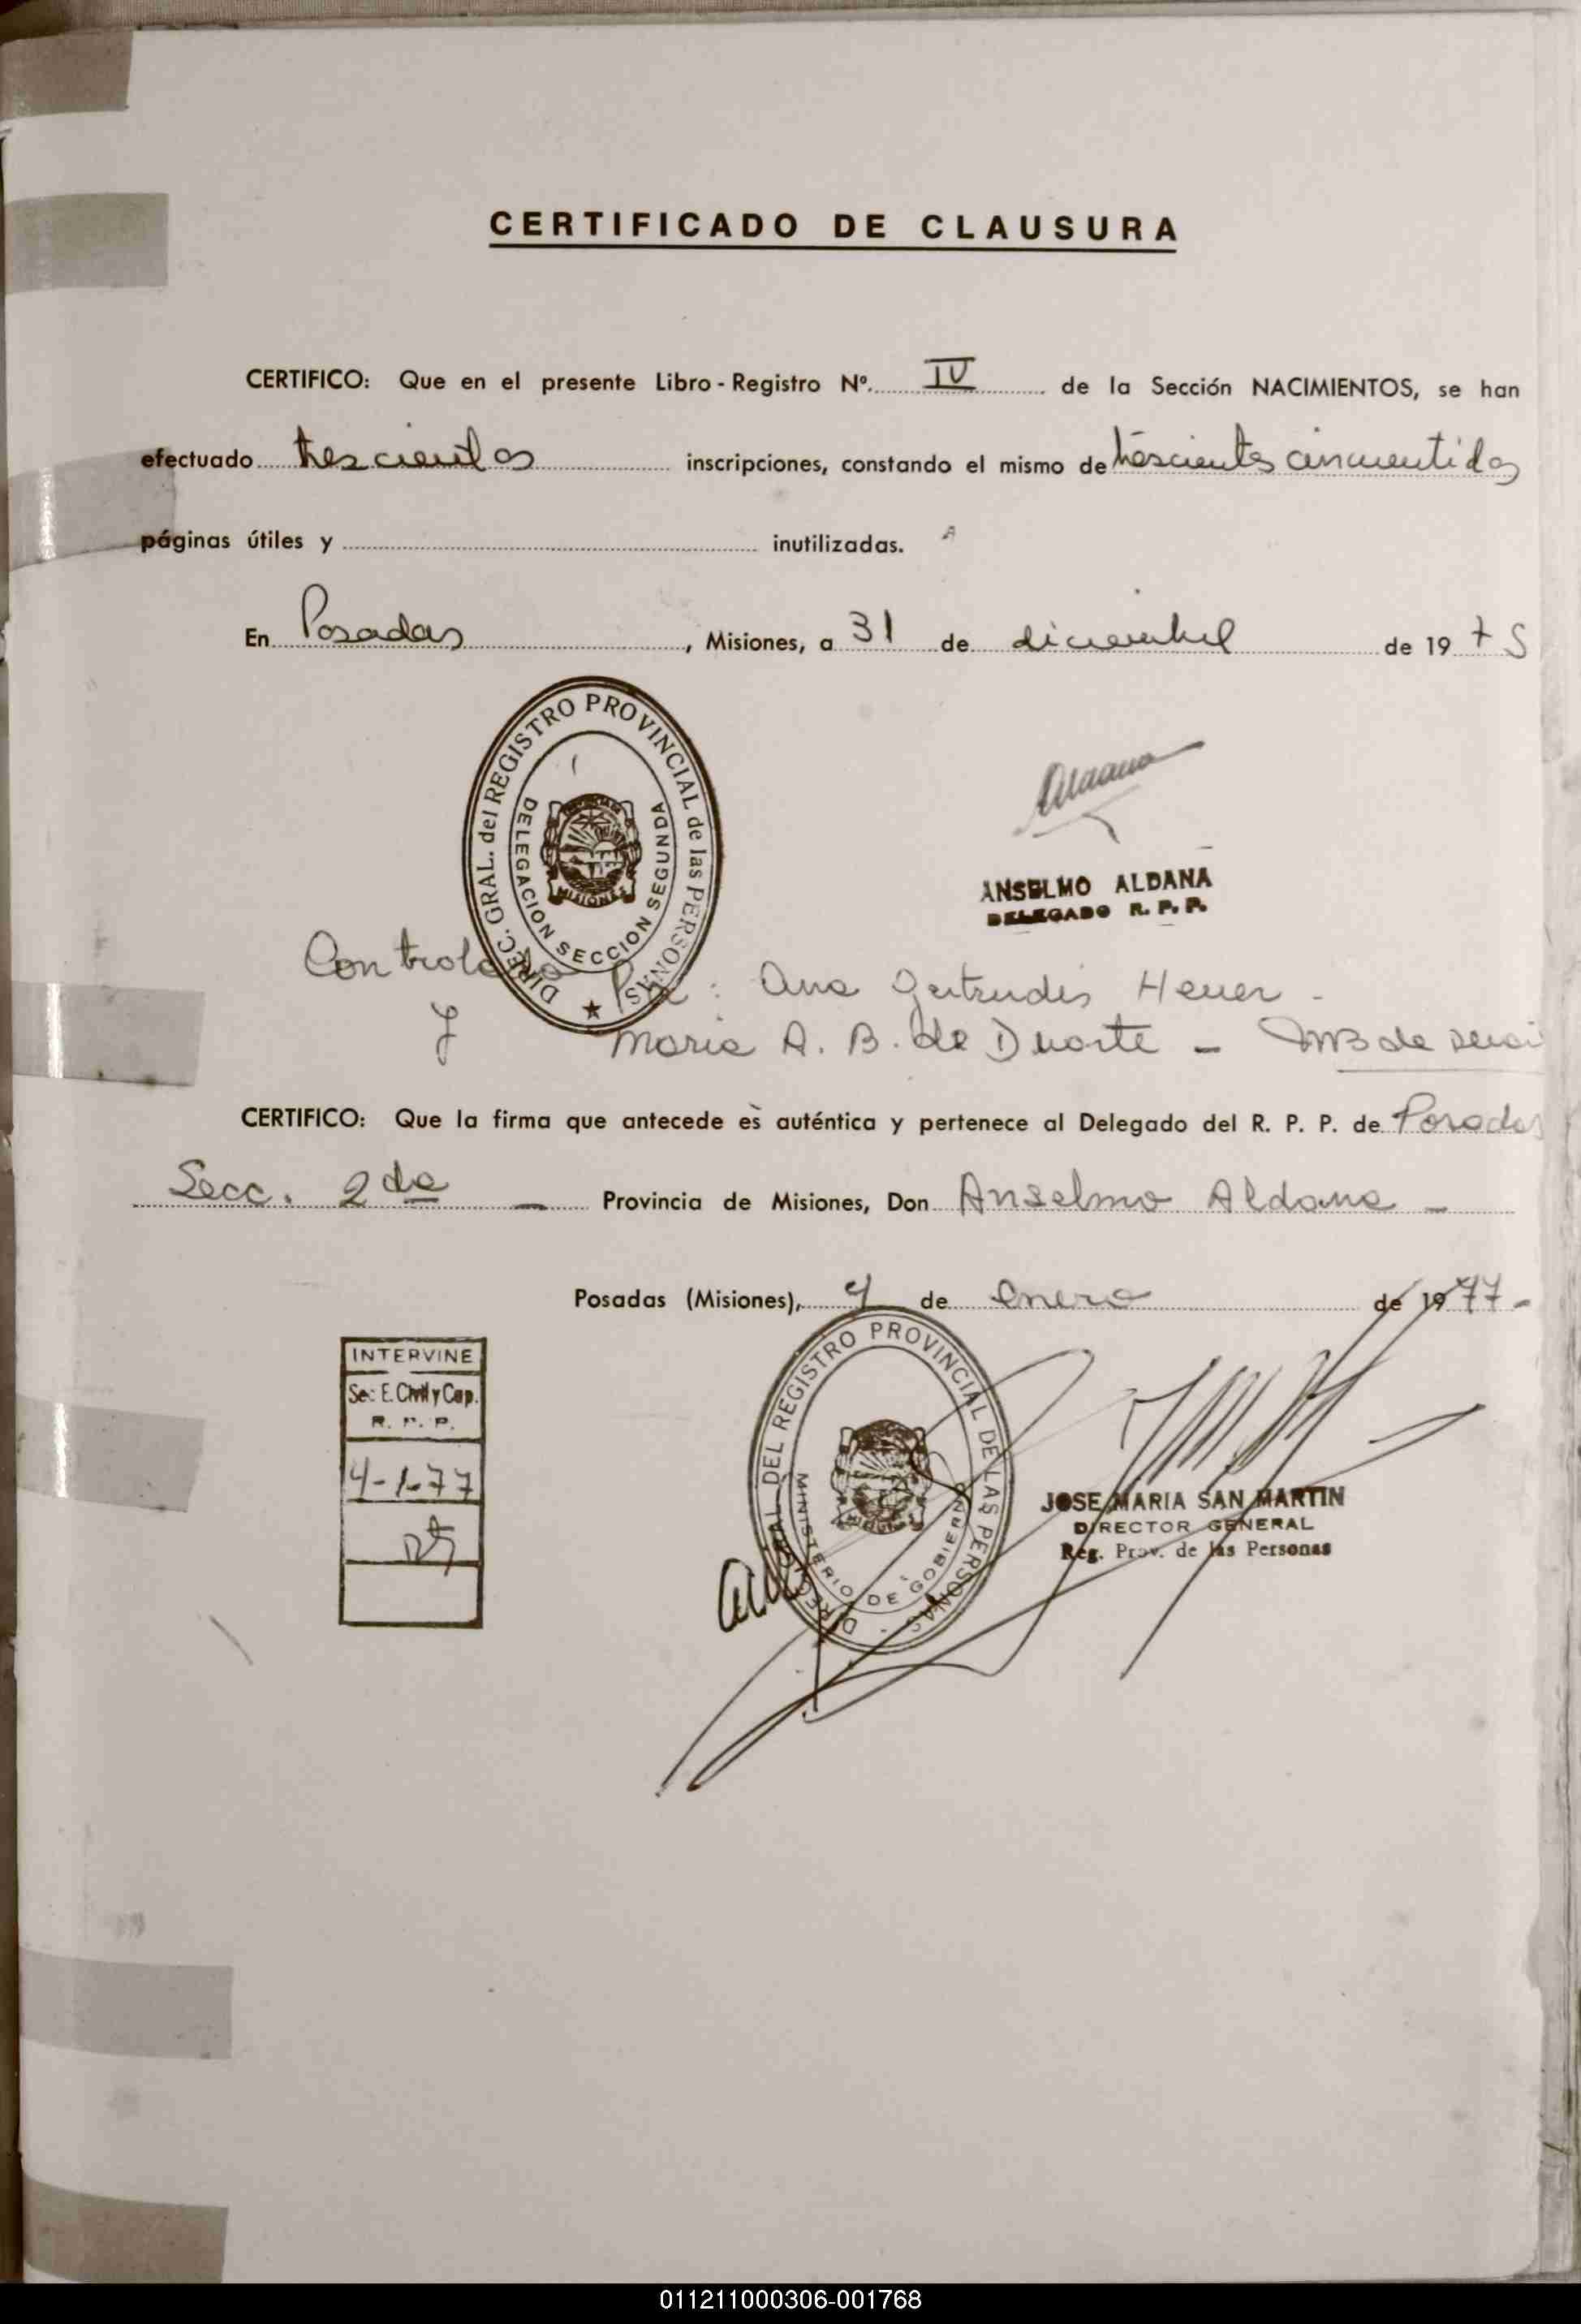 CERTIFICADO DE CLAUSURA
CERTIFICO: Que en el presente Libro - Registro Nº. IV de la Sección NACIMIENTOS, se han
efectuado trescientos inscripciones, constando el mismo de trescientos cincuentidos
páginas útiles y inutilizadas.
En Posadas, Misiones, a 31 de diciembre de 1975
DIREC. GRAL. del REGISTRO PROVINCIAL de las PERSONAS
DELEGACION SECCION SEGUNDA
MISIONES
ANSELMO ALDANA
DELEGADO R. P. P.
Controlado Por: Ana Gertrudis Heuer -
y Maria A. B. de Duarte -
CERTIFICO: Que la firma que antecede es auténtica y pertenece al Delegado del R. P. P. de Posadas
Secc. 2da - Provincia de Misiones, Don Anselmo Aldana -
Posadas (Misiones), 4 de enero de 1977 -
INTERVINE
Sec. E. Civil y Cap.
R. P. P.
4-1-77
DIREC. GRAL. DEL REGISTRO PROVINCIAL DE LAS PERSONAS -
MINISTERIO DE GOBIERNO
JOSE MARIA SAN MARTIN
DIRECTOR GENERAL
Reg. Prov. de las Personas
011211000306-001768